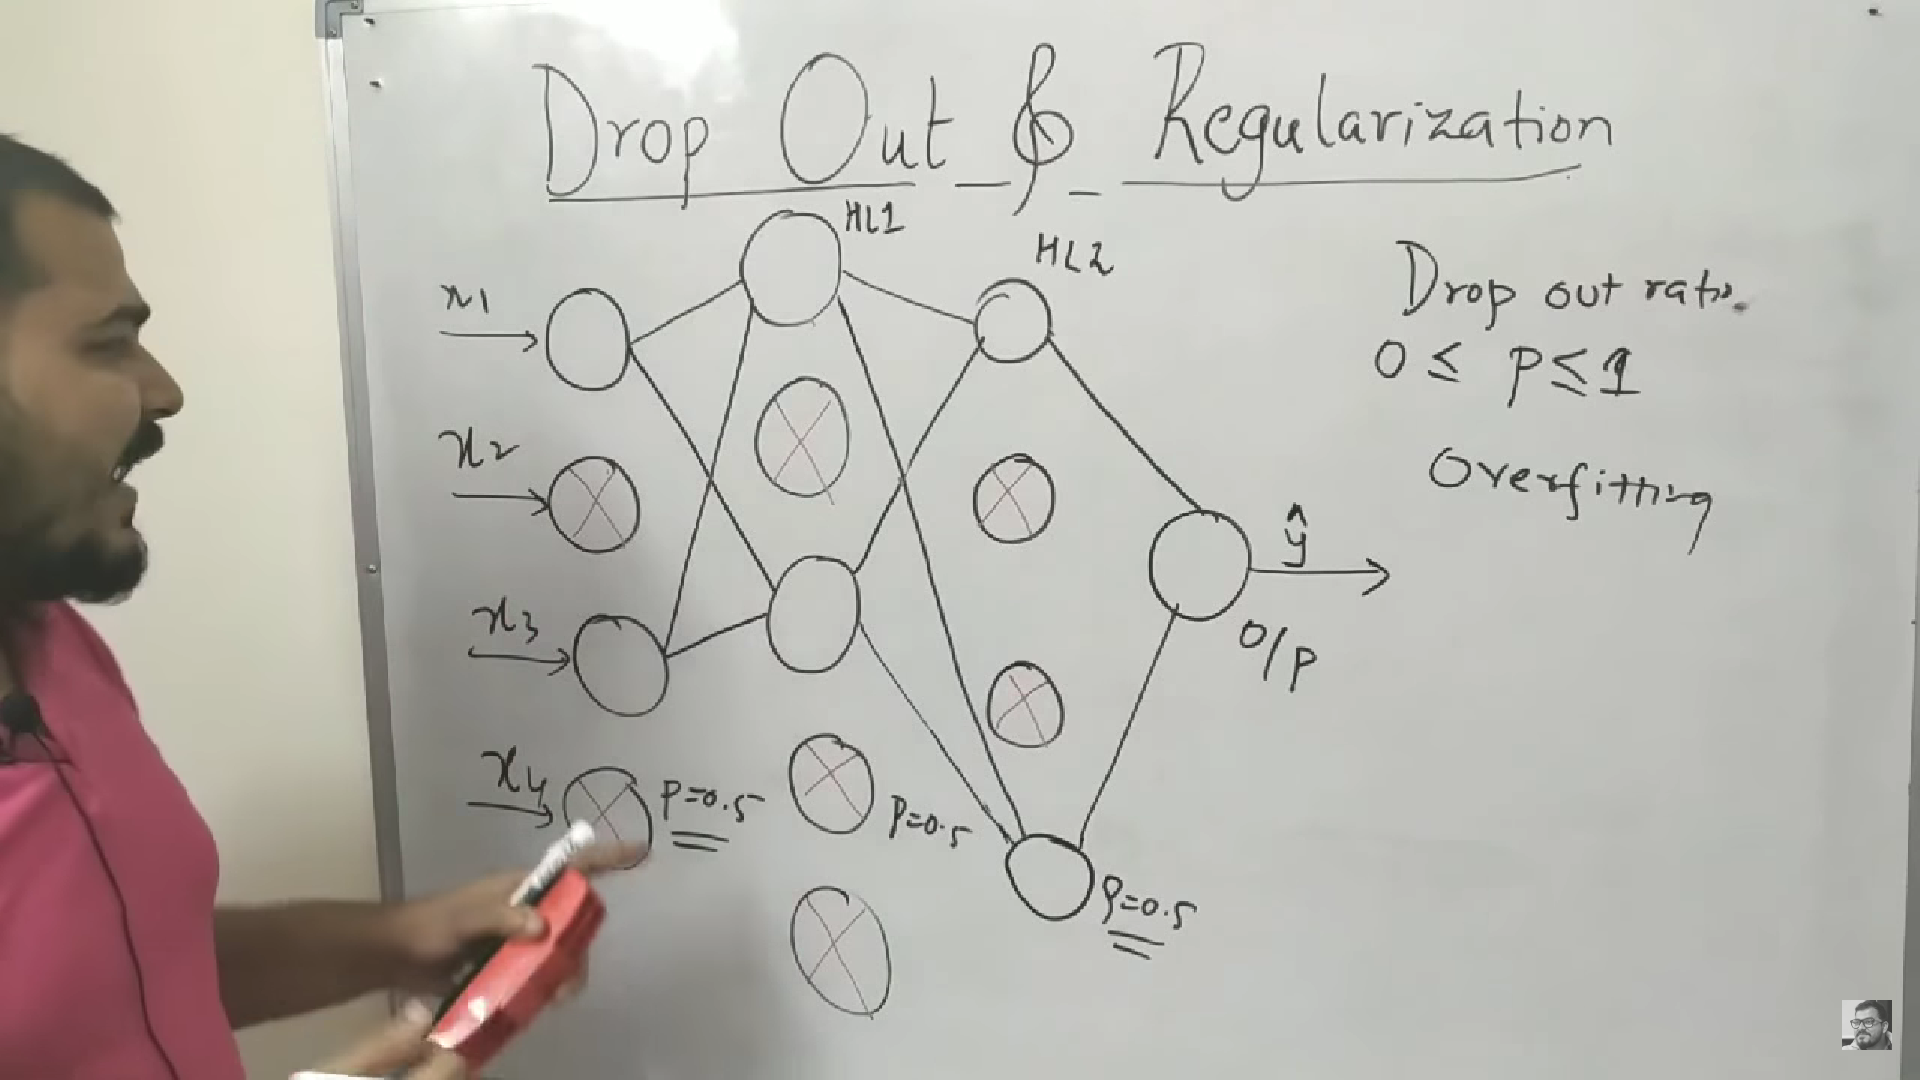 Drop Out & Regularization
HL1
HL2
x1
x2
x3
x4
p=0.5
p=0.5
p=0.5
ŷ
O/P
Drop out ratio.
0 ≤ p ≤ 1
Overfitting